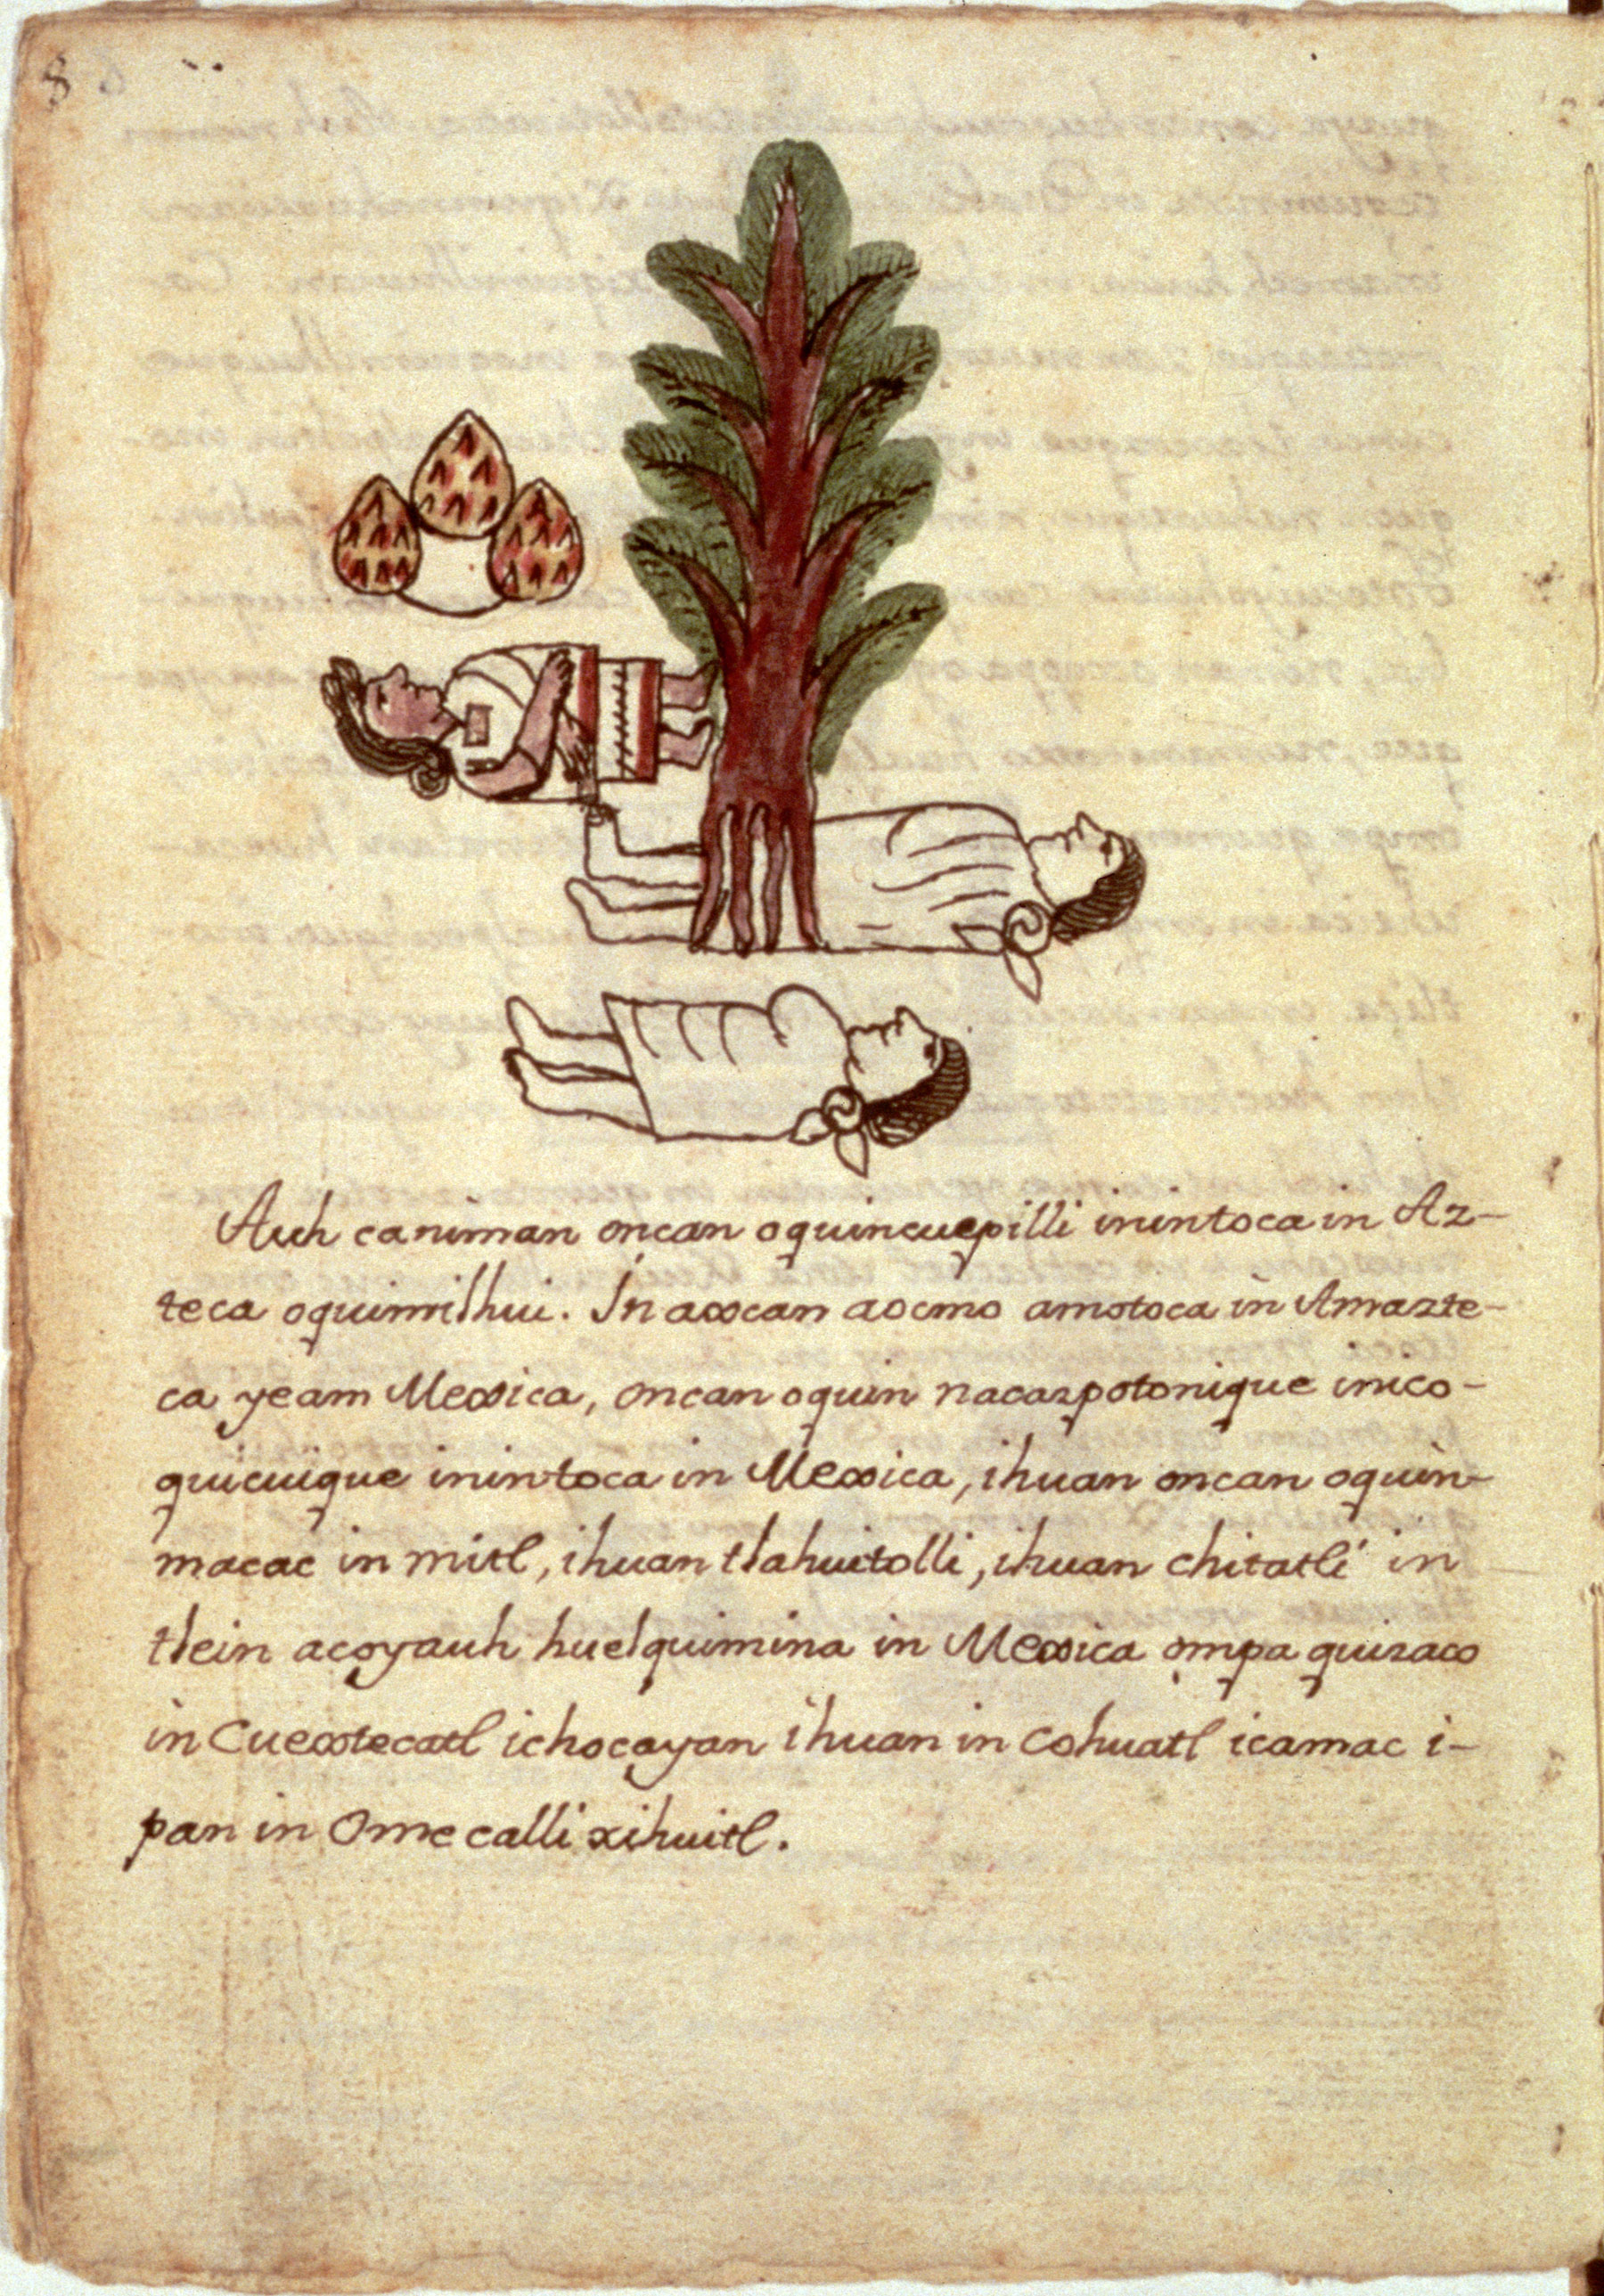 8
Auh caniman oncan oquincuepilli inintoca in Az-
teca oquimilhui. In axcan aocmo amotoca in Amazte-
ca yeam Mexica, oncan oquin nacazpotonique inico-
quicuique inintoca in Mexica, ihuan oncan oquin-
macac in mitl, ihuan tlahuitolli, ihuan chitatli in
tlein acoyauh huelquimina in Mexica ompa quizaco
in Cuextecatl ichocayan ihuan in Cohuatl icamac i-
pan in Omecalli xihuitl.